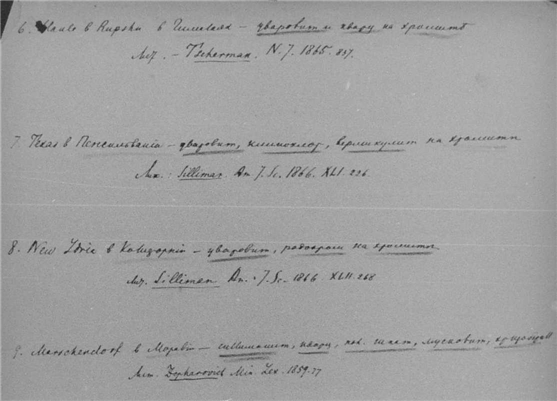 6. Hanle в Rupshu в Гималаях – уваровит и кварц на хромите
Лит. – Tschermak. N. J. 1865.
7. Texas в Пенсильвании – уваровит, клинохлор, вермикулит на хромите
Лит. Silliman. Am. J. Sc. 1866. XLI. 226.
8. New Idria в Калифорнии – уваровит, на хромите
Лит. Silliman Am. J. Sc. 1866. XLII. 268
9. Marschendorf в Моравии – силлиманит, кварц, пол. шпат, мусковит,
Лит. Zepharovich Min. Lex. 1859. 27